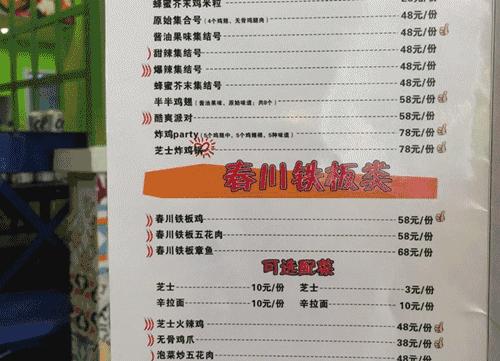 蜂蜜芥末鸡米粒
原始集合号（4个鸡翅，无骨鸡腿肉） 48元/份
酱油果味集结号 48元/份
甜辣集结号 48元/份
爆辣集结号 48元/份
蜂蜜芥末集结号 48元/份
半半鸡翅（酱油果味、原始味道：共8个） 58元/份
酷爽派对 58元/份
炸鸡party（5个鸡翅中，5个鸡翅根，5种味道） 78元/份
芝士炸鸡锅 78元/份
春川铁板类
春川铁板鸡 58元/份
春川铁板五花肉 58元/份
春川铁板章鱼 68元/份
可选配菜
芝士 10元/份 芝士 3元/份
辛拉面 10元/份 辛拉面 10元/份
芝士火辣鸡 48元/份
无骨鸡爪 38元/份
泡菜炒五花肉 48元/份